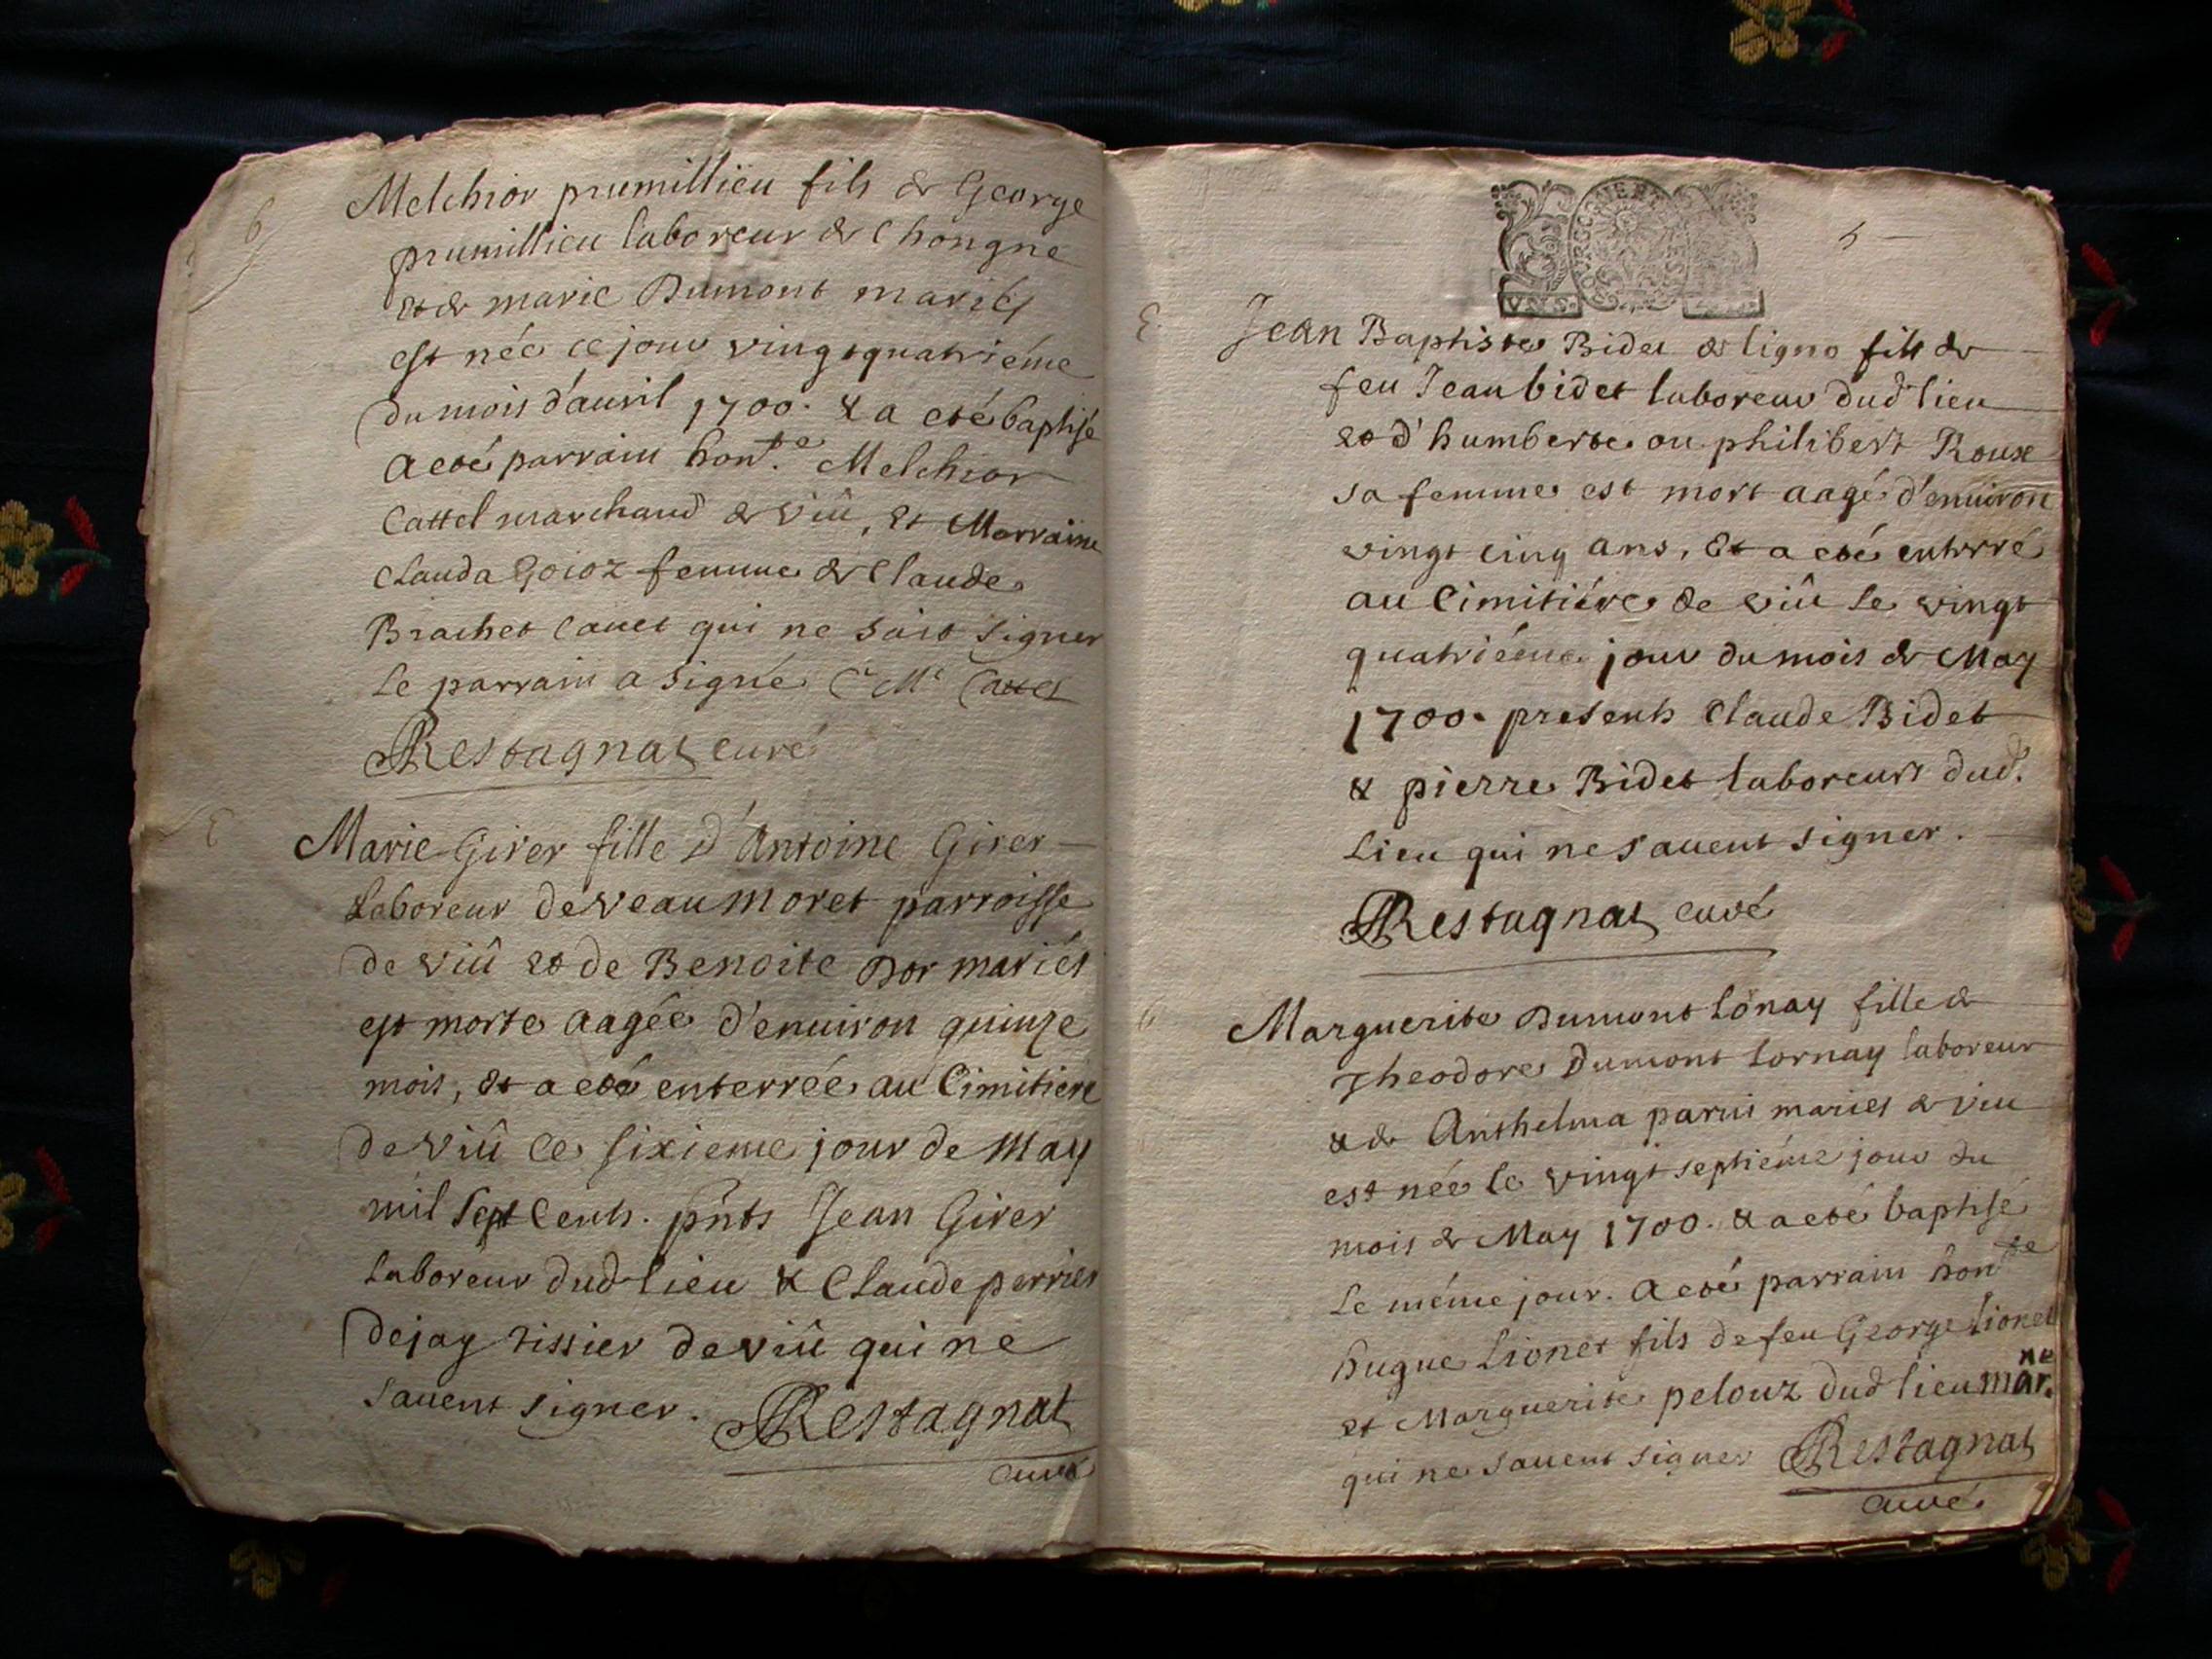 B
Melchior prumillieu fils de George
prumillieu laboreur de Chongne
et de marie Dumont mariés
est née ce jour vingtquatriéme
du mois d'auril 1700. & a eté baptisé
a eté parrain hon.te Melchior
Cattel marchand de viû, et Marraine
Clauda Goioz femme de Claude
Brachet Cauet qui ne sait signer
Le parrain a signé
Restagnat curé
E
Marie Girer fille d'Antoine Girer
Laboreur de Veaumoret parroisse
de viû et de Benoite Dor mariés
est morte aagée d'enuiron quinze
mois, et a eté enterrée au Cimitiere
de viû ce sixieme jour de May
mil sept Cents. pñts Jean Girer
Laboreur dud lieu & Claude perrier
dejay tissier de viû qui ne
sauent signer. Restagnat
curé
5
E.
Jean Baptiste Bidet de ligno fils de
feu Jean bidet laboreur dud lieu
et d'humberte ou philibert Roux
sa femme est mort aagé d'enuiron
vingt cinq ans, Et a eté enterré
au Cimitiére de viû le vingt
quatriéme jour du mois de May
1700. presents Claude Bidet
& pierre Bidet laboreurs dud.
Lieu qui ne sauent signer.
Restagnat curé
B
Marguerite Dumont Lonay fille de
Theodore Dumont Lornay laboreur
& de Anthelma parui mariés de viu
est née le vingt septiéme jour du
mois de May 1700. & a eté baptisé
Le méme jour. a eté parrain hon.te
hugue Lionet fils de feu George Lionet
et Marguerite pelouz dud lieu mar.ne
qui ne sauent signer Restagnat
curé.